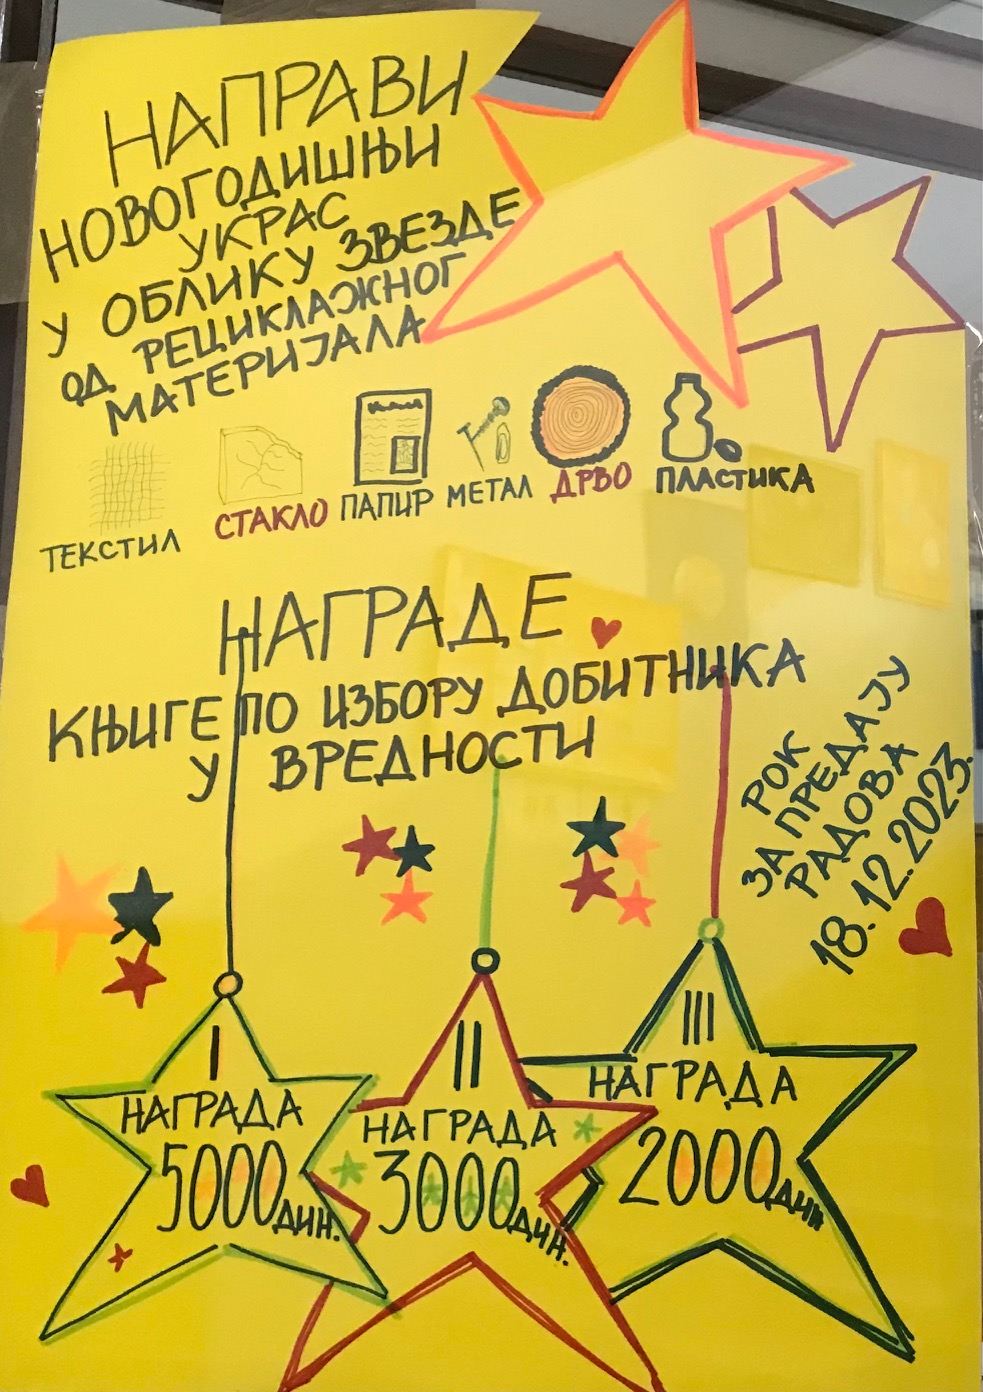 НАПРАВИ
НОВОГОДИШЊИ
УКРАС
У ОБЛИКУ ЗВЕЗДЕ
ОД РЕЦИКЛАЖНОГ
МАТЕРИЈАЛА
ТЕКСТИЛ СТАКЛО ПАПИР МЕТАЛ ДРВО ПЛАСТИКА
НАГРАДЕ
КЊИГЕ ПО ИЗБОРУ ДОБИТНИКА
У ВРЕДНОСТИ
РОК
ЗА ПРЕДАЈУ
РАДОВА
18.12.2023.
I
НАГРАДА
5000 ДИН.
II
НАГРАДА
3000 ДИН.
III
НАГРАДА
2000 ДИН